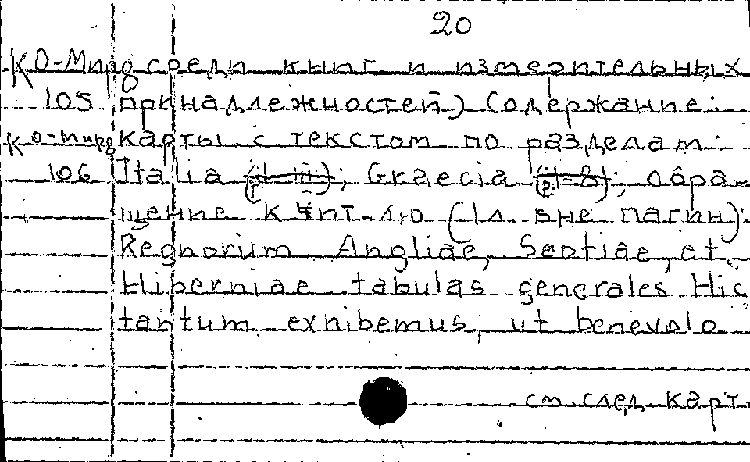 20
КО-Мирд среди книг и измерительных
105 принадлежностей) Содержание:
КО-Мирд карты с текстом по разделам:
106 Italia, Graecia, обра-
щение к чит-лю (1л. вне пагин):
Regnorum Angliae, Scotiae, et
Hiberniae tabulas generales Hic
tantum exhibemus, ut benevolo
см. след. карт.